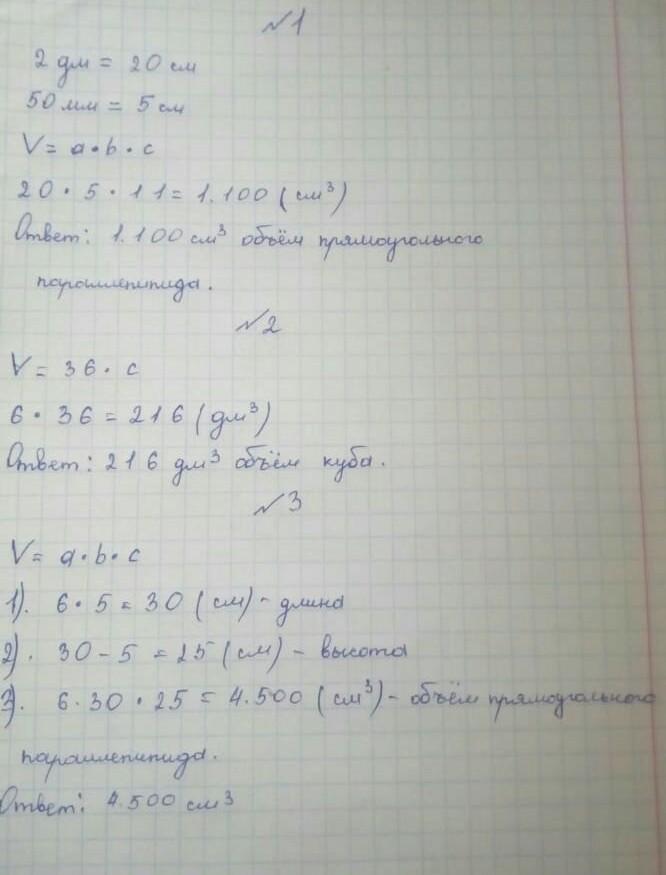 №1
2 дм = 20 см
50 мм = 5 см
V = a·b·c
20·5·11 = 1.100 (см³)
Ответ: 1.100 см³ объём прямоугольного
параллепипида.
№2
V = 36·c
6·36 = 216 (дм³)
Ответ: 216 дм³ объём куба.
№3
V = a·b·c
1). 6·5 = 30 (см) - длина
2). 30 - 5 = 25 (см) - высота
3). 6·30·25 = 4.500 (см³) - объём прямоугольного
параллепипида.
Ответ: 4.500 см³